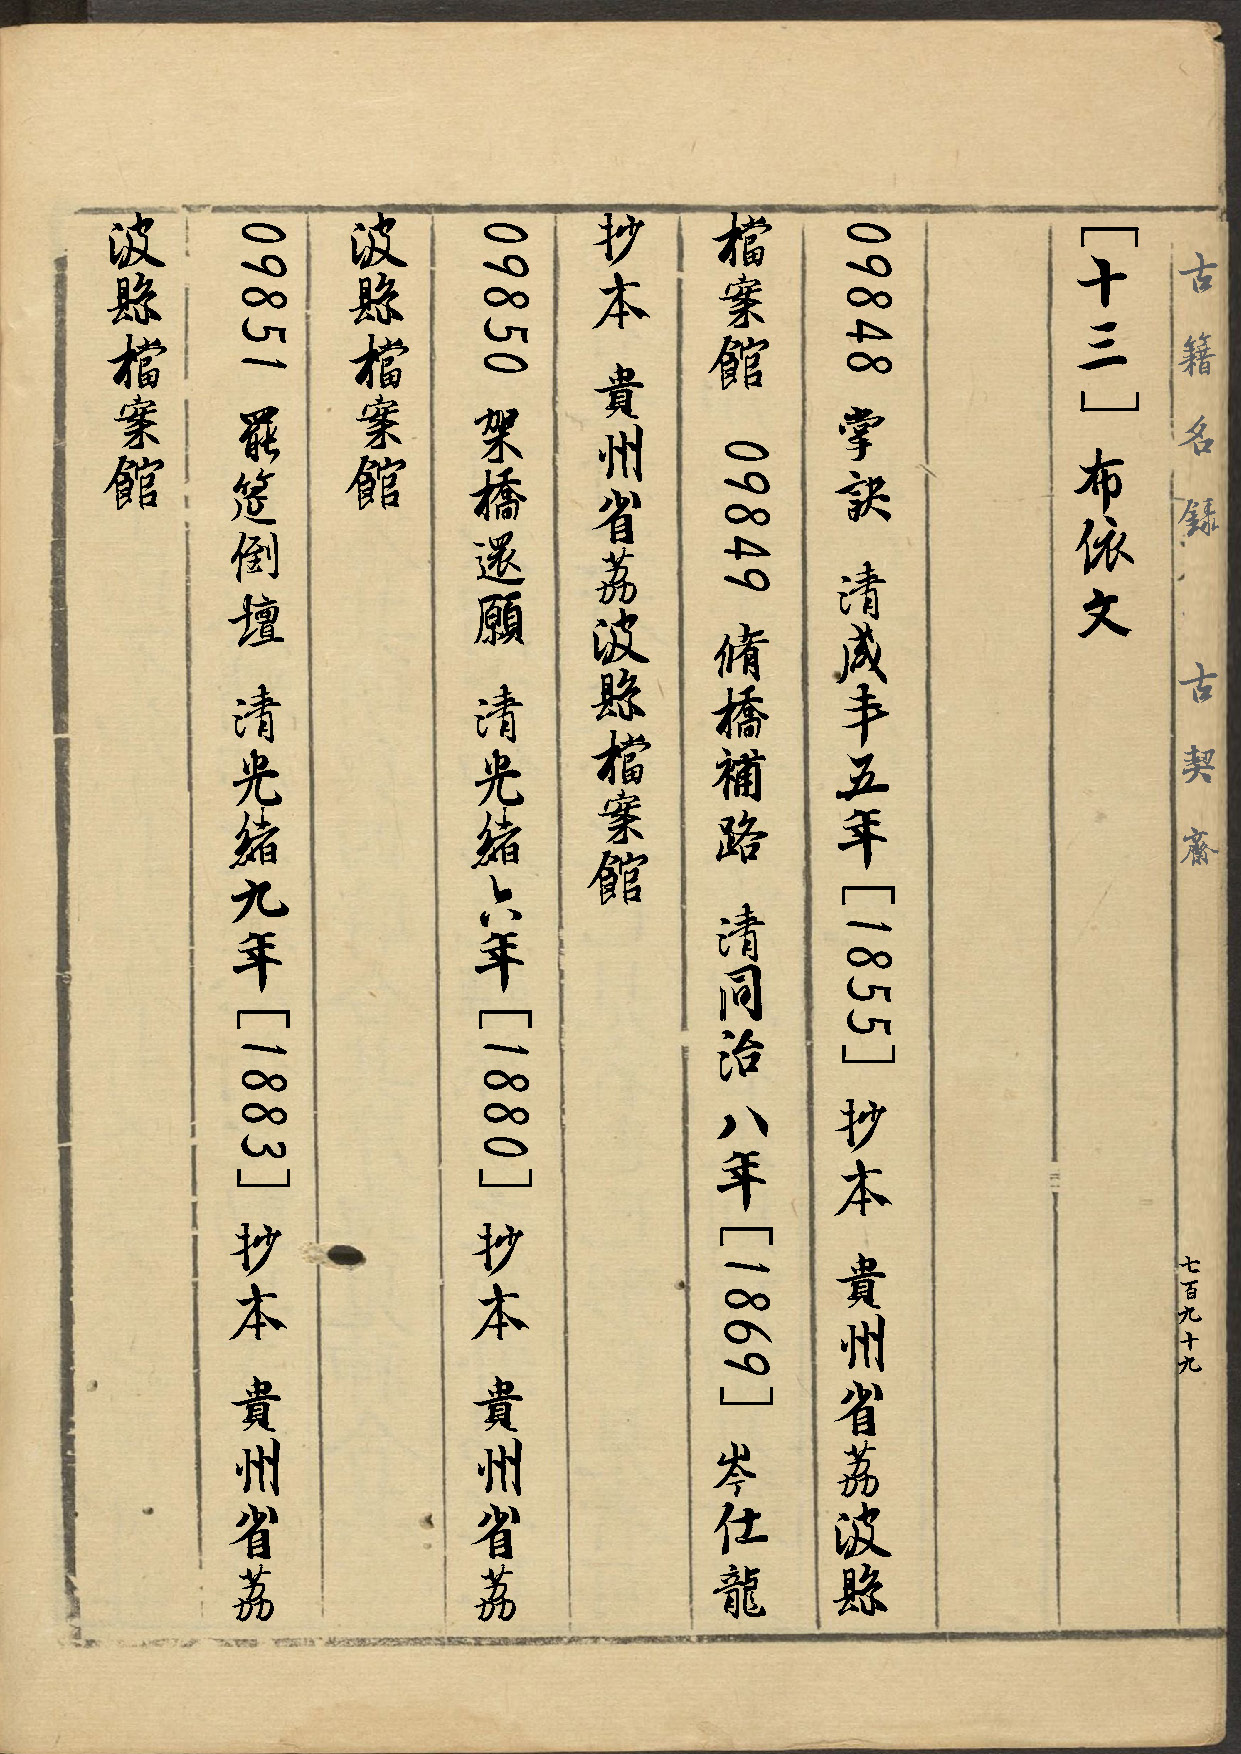 古籍名錄 古契齋
七百九十九
[十三] 布依文
09848 掌訣 清咸丰五年[1855] 抄本 貴州省荔波縣
檔案館 09849 脩橋補路 清同治八年[1869] 岑仕龍
抄本 貴州省荔波縣檔案館
09850 架橋還願 清光緒六年[1880] 抄本 貴州省荔
波縣檔案館
09851 罷筵倒壇 清光緒九年[1883] 抄本 貴州省荔
波縣檔案館